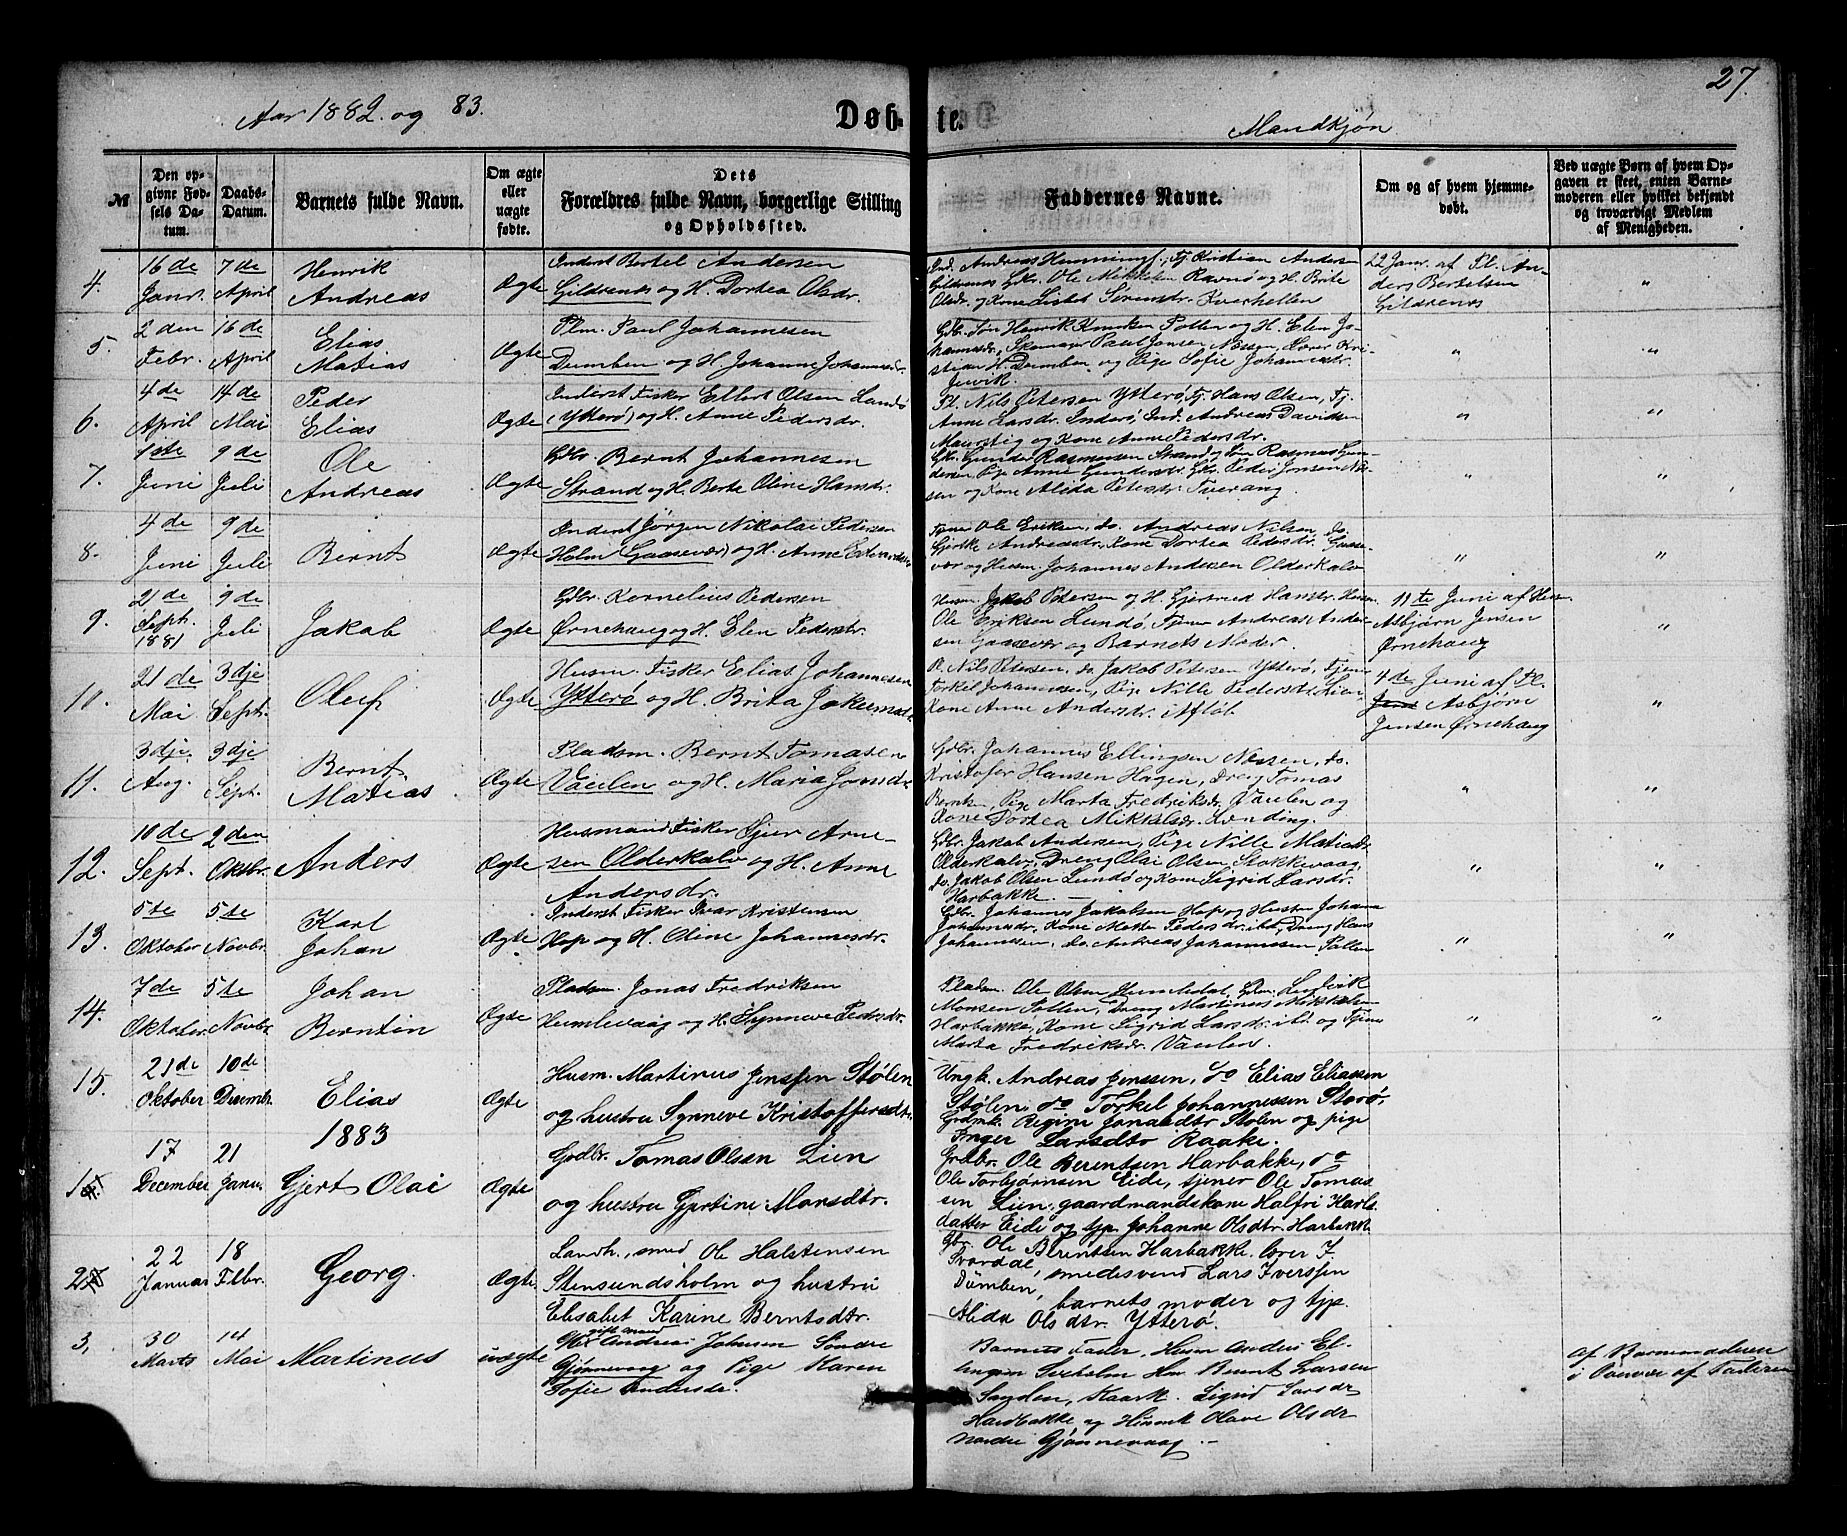 27.
Aar 1882 og 83.
Døb-
te.
Mandkjøn
No
Den op-
givne Fød-
sels Da-
tum.
Daabs-
Datum.
Barnets fulde Navn.
Om ægte
eller
uægte
fødte.
Dets
Forældres fulde Navn, borgerlige Stilling
og Opholdssted.
Faddernes Navne.
Om og af hvem hjemme-
døbt.
Ved uægte Børn af hvem Op-
gaven er skeet, enten Barne-
moderen eller hvilket bekjendt
og troværdigt Medlem
af Menigheden.
4.
16de
Janr.
7de
April
Henrik
Andreas
Ægte
Inderst Bertel Andersen
Gildrenes og H. Dortea Olsdr.
Ind. Andreas Henningsf., Tj. Kristian Anders-
Gildrenes Gbr. Ole Mikkelsen Ravnø og H. Brite
Olsdr. og Kone Lisbet Sørensdr. Kverhellen
22 Janr. af Pl. An-
ders Bertelsen
Gildrenes
"
5.
2den
Febr.
16de
April
Elias
Matias
Ægte
Plm. Paul Johannesen
Dumben og H. Johanne Johannesdr.
Gbr. Søn Henrik Knutsen Pollen og H. Elen Jo-
hannesdr., Skomager Paul Jansen Næssen, Lærer Kri-
stian H. Dumben og Pige Sofie Johannesdr.
"
"
6.
4de
April
14de
Mai
Peder
Elias
Ægte
Inderst Fisker Ellert Olsen Landø
(Ytterø) og H. Anne Pedersdr.
Pl. Nils Petersen Ytterø, Tj. Hans Olsen, Tj.
Anne Larsdr. Inderø, Ind. Andreas Davidsen
Maurstig og Kone Anne Pedersdr.
"
"
7.
1ste
Juni
9de
Juli
Ole
Andreas
Ægte
Gbr. Bernt Johannesen
Strand og H. Berte Oline Hansdr.
Gbr. Gunder Rasmussen Strand og Søn Rasmus Gun-
dersen Pige Anne Gundersdr. Gbr. Peder Jonsen Næs-
sen og Kone Alida Petersdr. Tverang.
"
"
8.
4de
Juni
9de
Juli
Bernt
Ægte
Inderst Jørgen Nikolai Pedersen
Holm (Gaasevær) og H. Anne Edvardsdr.
Tjener Ole Eriksen, do. Andreas Nilsen, do.
Gjertke Andreasdr., Kone Dortea Pedersdr. Gaase-
vær og Husm. Johannes Andersen Olderkalv
"
"
9.
21de
Sept.
1881
9de
Juli
Jakob
Ægte
Gbr. Kornelius Pedersen
Ørnehaug og H. Elen Pedersdr.
Husm. Jakob Petersen og H. Gjertrud Hansdr. Husm
Ole Eriksen Lundø, Tjener Andreas Ander-
sen Gaasevær og Barnets Moder.
11te Juni af Hus.
Asbjørn Jensen
Ørnehaug
"
10.
21de
Mai
3dje
Sept.
Oluf
Ægte
Husm. Fisker Elias Johannesen
Ytterø og H. Brita Jakobsdr
P. Nils Petersen, do. Jakob Petersen Ytterø, Tjener
Torkel Johannessen, Pige Nille Pedersdr. Lien
Kone Anne Andersdr. Afløb.
4de Juni af Pl.
Asbjørn
Jensen Ørnehaug
"
11.
3dje
Aug.
3dje
Sept.
Bernt
Matias
Ægte
Pladsm. Bernt Tomasen
Vaulen og H. Maria Jonsdr.
Gbr. Johannes Ellingsen Næssen, do.
Kristofer Hansen Hagen, Dreng Tomas
Berntsen, Pige Marta Fredriksdr. Vaulen og
Kone Dortea Mikkelsdr. Lending.
"
"
12.
10de
Sept.
2den
Oktbr.
Anders
Ægte
Husmand Fisker Sjur Arne-
sen Olderkalv og H. Anne
Andersdr.
Gbr. Jakob Andersen, Pige Nille Matiasdr.
Olderkalv, Dreng Olai Olsen Stokkevaag,
do. Jakob Olsen Lundø og Kone Sigrid Larsdr.
Harbakke.
"
"
13.
5te
Oktober
5te
Novbr.
Karl
Johan
Ægte
Inderst Fisker Ivar Kristensen
Hop og H. Oline Johannesdr.
Gbr. Johannes Jakobsen Hop og Hustru Johana
Johannesdr., Kone Mette Pedersdr. ibd., Dreng Hans
Johannessen, do. Andreas Johannessen Pollen
"
"
14.
7de
Oktober
5te
Novbr
Johan
Berntin
Ægte
Pladsm. Jonas Fredriksen
Humlevaag og H. Synneve Pedersdr.
Pladsm. Ole Olsen Humledal, Gdm. Ludvik
Monsen Pollen, Dreng Martinus Mikkelsen
Harbakke, Kone Sigrid Larsdr. ibd. og Tjener
Marta Fredriksdr. Vaulen.
"
"
15.
21de
Oktober
10de
Decembr.
Elias
Ægte
Husm. Martinus Jenssen Stølen
og hustru Synneve Kristoffersdtr.
Ungk. Andreas Jenssen, do Elias Eliassen
Stølen, do Torkel Johannessen Storø,
Grdmk. Regine Jonasdtr Stølen og pige
Inger Larsdtr Raake.
1883
1.
17
December
21
Janu.
Gjert Olai
Ægte
Grdbr. Tomas Olsen Lien
og hustru Gjertine Monsdtr.
Grdbr. Ole Berentsen Harbakke, do
Ole Torbjørnsen Eide, tjener Ole Tomas
sen Lien, gaardmandskone Halfri Karls
datter Eide og tjp. Johanne Olsdtr. Harbakke
2
22
Januar
18
Febr.
Georg.
Ægte
Landh., smed Ole Halstensen
Stensundsholm og hustru
Elisabet Karine Berntsdtr.
Gbr. Ole Berentsen Harbakke, lærer I.
Svardal
Dumben, smedesvend Lars Iverssen
barnets moder og tjp.
Alida Olsdtr. Ytterø.
3,
30
Marts
14
Mai
Martinus
uægte
gift mand
Andreas Johnsen Søndre
Gjønnevaag og Pige Karen
Sofie Andersdr.
Barnets Fader, Husm Anders El-
lingsen Seiholm Hm Bernt Larsen
Sanden, Sigrid Larsdr
Hardbakke og Olave Olsdr
Nordre Gjønnevaag
Af Barnemoderen
i Nærvær af Faderen